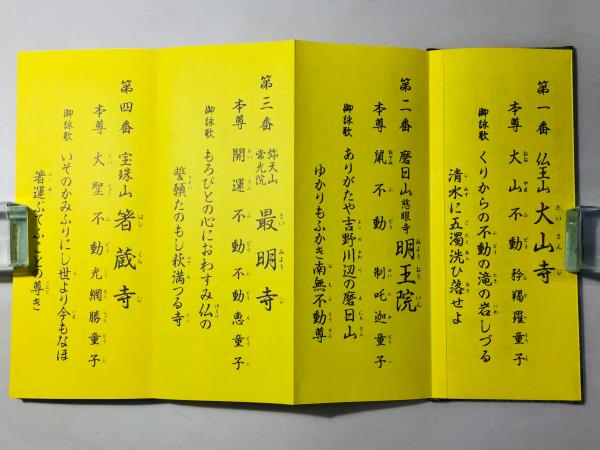 第一番 仏王山 大山寺
本尊 大山不動 矜羯羅童子
御詠歌 くりからの不動の滝の岩のしづる
清水に五濁洗ひ落せよ
第二番 磨日山慈眼寺 明王院
本尊 鼠不動 制吒迦童子
御詠歌 ありがたや吉野川辺の磨日山
ゆかりもふかき南無不動尊
第三番 弥天山常光院 最明寺
本尊 開運不動 不動恵童子
御詠歌 もろびとの心におわすみ仏の
誓願たのもし萩満つる寺
第四番 宝珠山 箸蔵寺
本尊 大聖不動 光網勝童子
御詠歌 いそのかみふりにし世より今もなほ
箸運ぶてふことの尊き